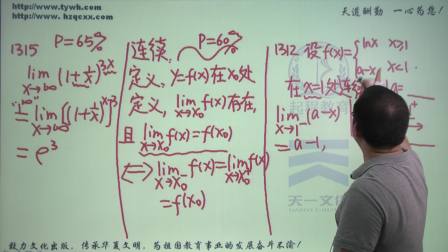 http://www.tywh.com
http://www.hzqcxx.com
天道酬勤 一心为您!
1315 P=65%
lim x→∞ (1+1/x)^3x
"1^∞"
= lim x→∞ [(1+1/x)^x]^3
= e^3
连续, P=60%
定义, y=f(x)在x₀处
定义, lim x→x₀ f(x)存在,
且 lim x→x₀ f(x)=f(x₀)
⟺ lim x→x₀⁻ f(x)=lim x→x₀⁺ f(x)
=f(x₀)
1312 设f(x)={lnx x≥1
a-x x<1
在x=1处连
a=
lim x→1⁻ (a-x)
=a-1,
起程教育
天一文化
致力文化出版,传承华夏文明,为祖国教育事业的发展奋斗不渝!